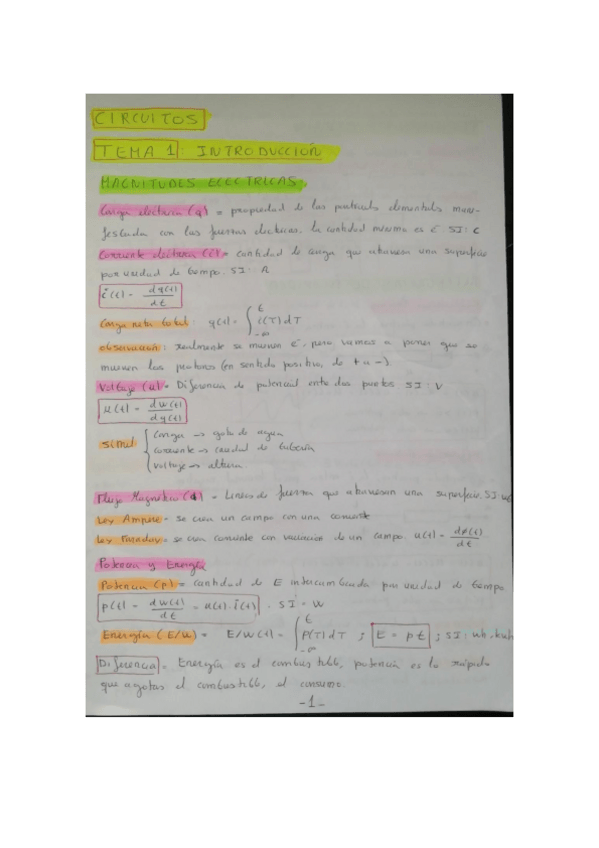 CIRCUITOS
TEMA 1: INTRODUCCIÓN
MAGNITUDES ELECTRICAS.
Carga electrica (q) = propiedad de las partículas elementales mani-
festada con las fuerzas electricas. la cantidad minima es e⁻ SI: C
Corriente electrica (i) = cantidad de carga que atraviesa una superficie
por unidad de tiempo. SI: A
i(t) = dq(t)/dt
Carga neta total: q(t) = ∫_{-∞}^{t} i(T) dT
observación: realmente se mueven e⁻, pero vamos a poner que se
mueven los protones (en sentido positivo, de + a -)
Voltaje (u) = Diferencia de potencial entre dos puntos SI: V
u(t) = dw(t)/dq(t)
simil { Carga → gota de agua
corriente → caudal de tubería
voltaje → altura.
Flujo Magnético (Φ) = Lineas de fuerza que atraviesan una superficie. SI: Wb
Ley Ampere = se crea un campo con una corriente
Ley Faraday = se crea corriente con variación de un campo. u(t) = dφ(t)/dt
Potencia y Energía
Potencia (p) = cantidad de E intercambiada por unidad de tiempo
p(t) = dw(t)/dt = u(t)·i(t) . SI = W
Energía (E/w) = E/w(t) = ∫_{-∞}^{t} p(T) dT ; E = p t ; SI: wh, kwh
Diferencia = Energía es el combustible, potencia es lo rápido
que agotas el combustible, el consumo.
-1-